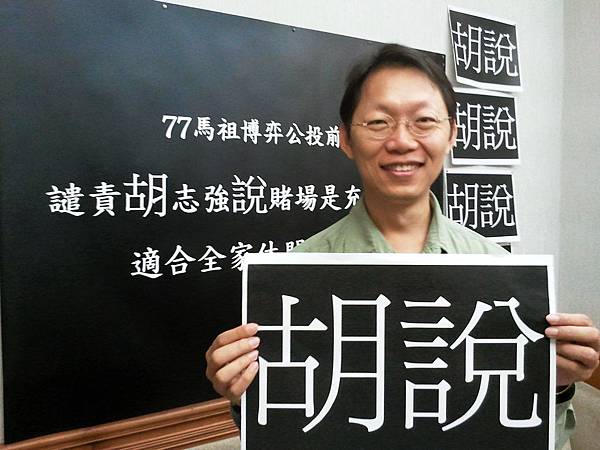 77馬祖博弈公投前
譴責胡志強說賭場是充
適合全家休閒
胡說
胡說
胡說
胡說